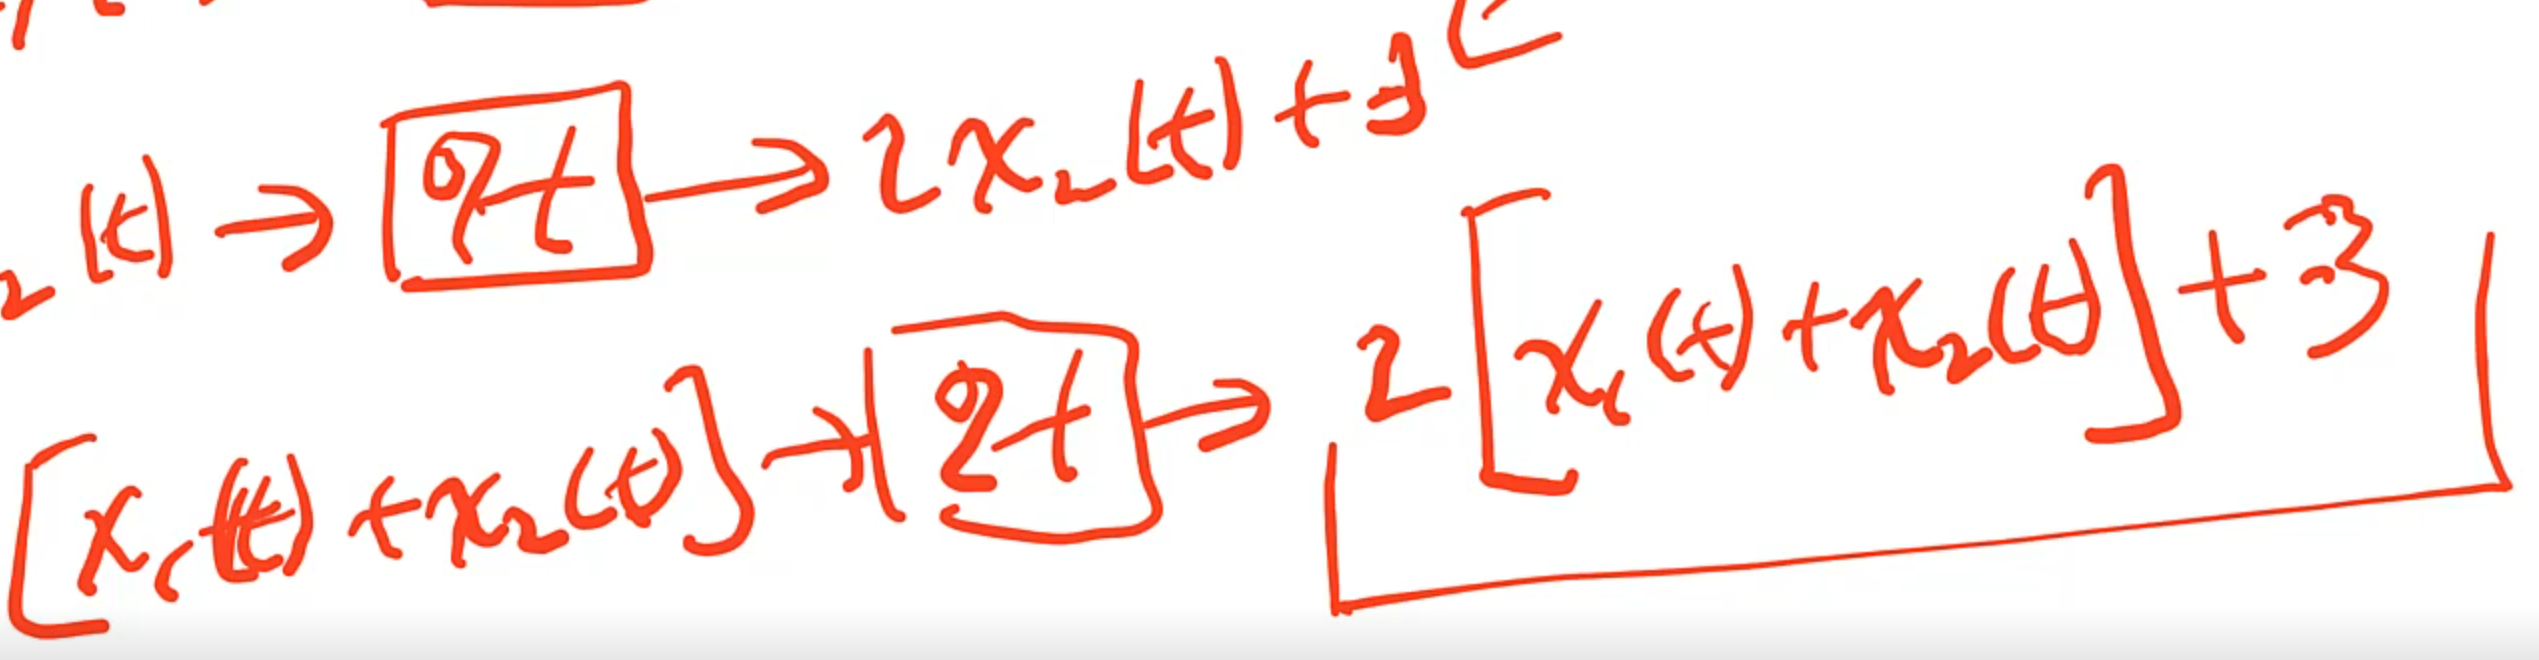 ₂(t) → [2t] → 2x₂(t)+3
[x₁(t)+x₂(t)] → [2t] → 2[x₁(t)+x₂(t)]+3